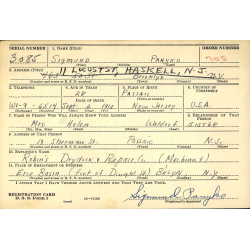 SERIAL NUMBER 1. NAME (Print) ORDER NUMBER
3085 SIGMUND PANYKO 703
11 LOCUST ST, HASKELL, N.J.
2. ADDRESS (Print)
Brooklyn N.Y.
3. TELEPHONE 4. AGE IN YEARS 5. PLACE OF BIRTH 6. COUNTRY OF CITIZENSHIP
28 Passaic
DATE OF BIRTH
WI-9-6514 Sept 2 1912 New Jersey U.S.A.
7. NAME OF PERSON WHO WILL ALWAYS KNOW YOUR ADDRESS 8. RELATIONSHIP OF THAT PERSON
Mrs Helen Waldorf SISTER
9. ADDRESS OF THAT PERSON
18 Sherman St Passaic N.J.
10. EMPLOYER'S NAME
Robins Drydock & Repair Co (Machinist)
11. PLACE OF EMPLOYMENT OR BUSINESS
Erie Basin (Foot of Dwight St) BKLYN N.Y.
I AFFIRM THAT I HAVE VERIFIED ABOVE ANSWERS AND THAT THEY ARE TRUE.
REGISTRATION CARD
D. S. S. Form 1
Sigmund Panyko